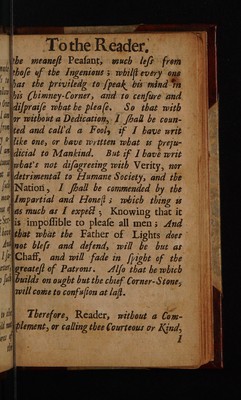 To the Reader.
the meanest Peasant, much less from
those of the Ingenious; whilst every one
has the priviledg to speak his mind in
his Chimney-Corner, and to censure and
dispraise what he please. So that with
or without a Dedication, I shall be coun-
ted and call'd a Fool, if I have writ
like one, or have written what is preju-
dicial to Mankind. But if I have writ
what's not disagreeing with Verity, nor
detrimental to Humane Society, and the
Nation, I shall be commended by the
Impartial and Honest; which thing is
as much as I expect; Knowing that it
is impossible to please all men; And
that what the Father of Lights does
not bless and defend, will be but as
Chaff, and will fade in spight of the
greatest of Patrons. Also that he which
builds on ought but the chief Corner-Stone,
will come to confusion at last.
Therefore, Reader, without a Com-
plement, or calling thee Courteous or Kind,
I